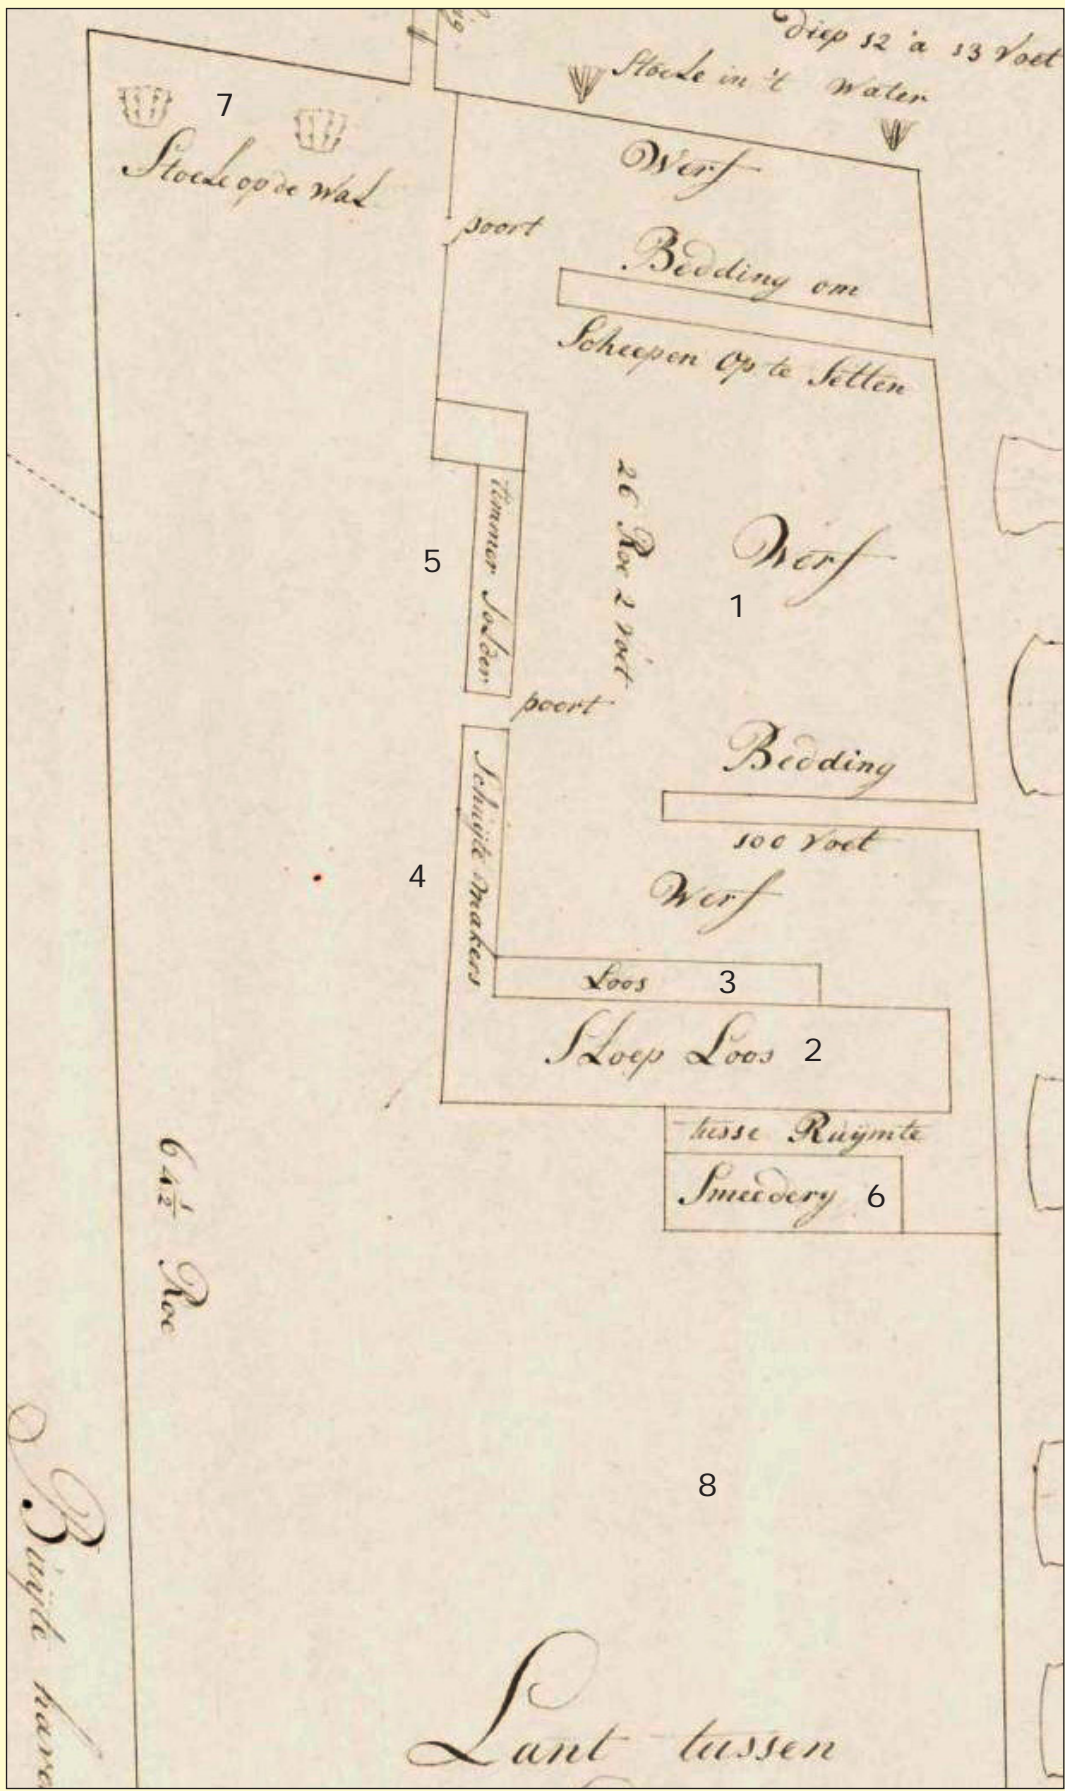 diep 12 a 13 Voet
Stoele in 't Water
7
Stoele op de Wal
Werf
poort
Bedding om
Scheepen Op te Setten
26 Roe 2 voet
timmer Solder
5
Werf
1
poort
Bedding
100 Voet
Schuijte makers
4
Werf
Loos 3
SLoep Loos 2
tusse Ruijmte
Smeedery 6
64½ Roe
8
Buijte
Lant tussen